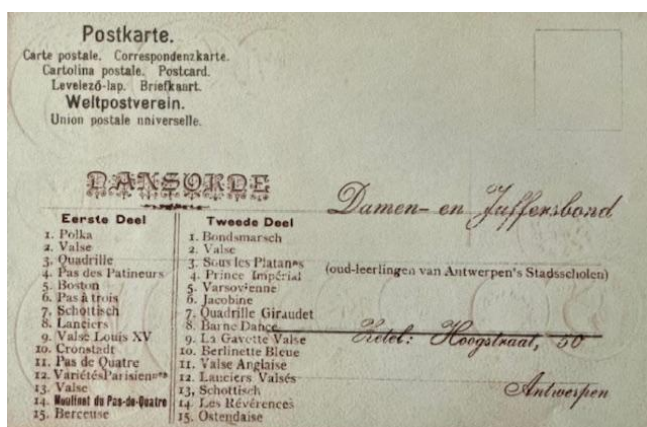 Postkarte.
Carte postale. Correspondenzkarte.
Cartolina postale. Postcard.
Levelező-lap. Briefkaart.
Weltpostverein.
Union postale universelle.
DANSORDE
Eerste Deel
1. Polka
2. Valse
3. Quadrille
4. Pas des Patineurs
5. Boston
6. Pas à trois
7. Schottisch
8. Lanciers
9. Valse Louis XV
10. Cronstadt
11. Pas de Quatre
12. VariétésParisien
13. Valse
14. Moulinet du Pas-de-Quatre
15. Berceuse
Tweede Deel
1. Bondsmarsch
2. Valse
3. Sous les Platanes
4. Prince Impérial
5. Varsovienne
6. Jacobine
7. Quadrille Giraudet
8. Barne Dance
9. La Gavotte Valse
10. Berlinette Bleue
11. Valse Anglaise
12. Lanciers Valsés
13, Schottisch
14. Les Révérences
15. Ostendaise
Damen- en Juffersbond
(oud-leerlingen van Antwerpen's Stadsscholen)
Zetel: Hoogstraat, 50
Antwerpen